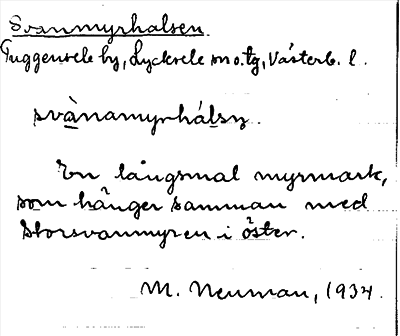 Svanmyrhalsen.
Tuggensele by, Lycksele sn o. tg, Västerb. l.
svànamyrhálsn.
En långsmal myrmark,
som hänger samman med
Storsvanmyren i öster.
M. Neuman, 1934.